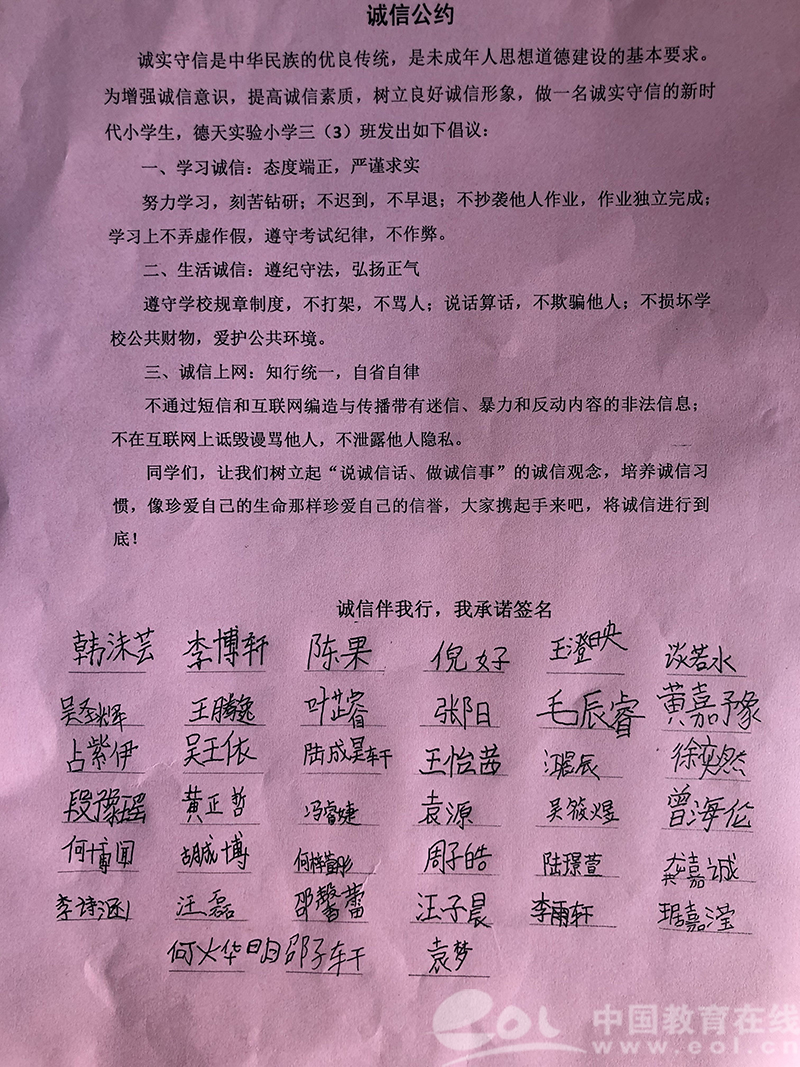 诚信公约
诚实守信是中华民族的优良传统，是未成年人思想道德建设的基本要求。
为增强诚信意识，提高诚信素质，树立良好诚信形象，做一名诚实守信的新时
代小学生，德天实验小学三（3）班发出如下倡议：
一、学习诚信：态度端正，严谨求实
努力学习，刻苦钻研；不迟到，不早退；不抄袭他人作业，作业独立完成；
学习上不弄虚作假，遵守考试纪律，不作弊。
二、生活诚信：遵纪守法，弘扬正气
遵守学校规章制度，不打架，不骂人；说话算话，不欺骗他人；不损坏学
校公共财物，爱护公共环境。
三、诚信上网：知行统一，自省自律
不通过短信和互联网编造与传播带有迷信、暴力和反动内容的非法信息；
不在互联网上诋毁谩骂他人，不泄露他人隐私。
同学们，让我们树立起“说诚信话、做诚信事”的诚信观念，培养诚信习
惯，像珍爱自己的生命那样珍爱自己的信誉，大家携起手来吧，将诚信进行到
底！
诚信伴我行，我承诺签名
韩沫芸 李博轩 陈果 倪好 王澄映 谈若水
王腾逸 叶芷睿 张阳 毛辰睿 黄嘉豫
占紫伊 吴王依 陆成昊轩 王怡茜 徐奕然
段豫瑶 黄正哲 冯睿婕 袁源 吴筱煜 曾海伦
何博闻 胡成博 何梓萱彤 周子皓 陆璟萱 嘉诚
李诗涵 汪磊 邵馨蕾 汪子晨 李雨轩 琚嘉滢
何火华明 邵子轩 袁梦
eol 中国教育在线
www.eol.cn